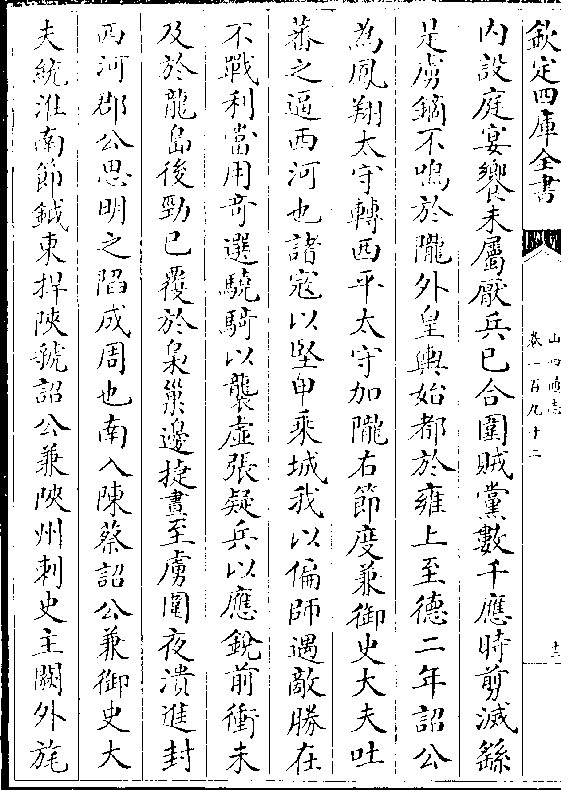 欽定四庫全書
山西通志
卷一百九十二
十二
内設庭宴饗未屬厭兵已合圍賊黨數千應時剪滅繇
是虜鏑不鳴於隴外皇輿始都於雍上至德二年詔公
為鳳翔太守轉西平太守加隴右節度兼御史大夫吐
蕃之逼西河也諸寇以堅甲乘城我以偏師遇敵勝在
不戰利當用竒選驍騎以襲虚張疑兵以應鋭前衝未
及於龍島後勁已覆於梟巢邊捷晝至虜圍夜潰進封
西河郡公思明之陷成周也南入陳蔡詔公兼御史大
夫統淮南節鉞東捍陜虢詔公兼陜州刺史主闕外旄